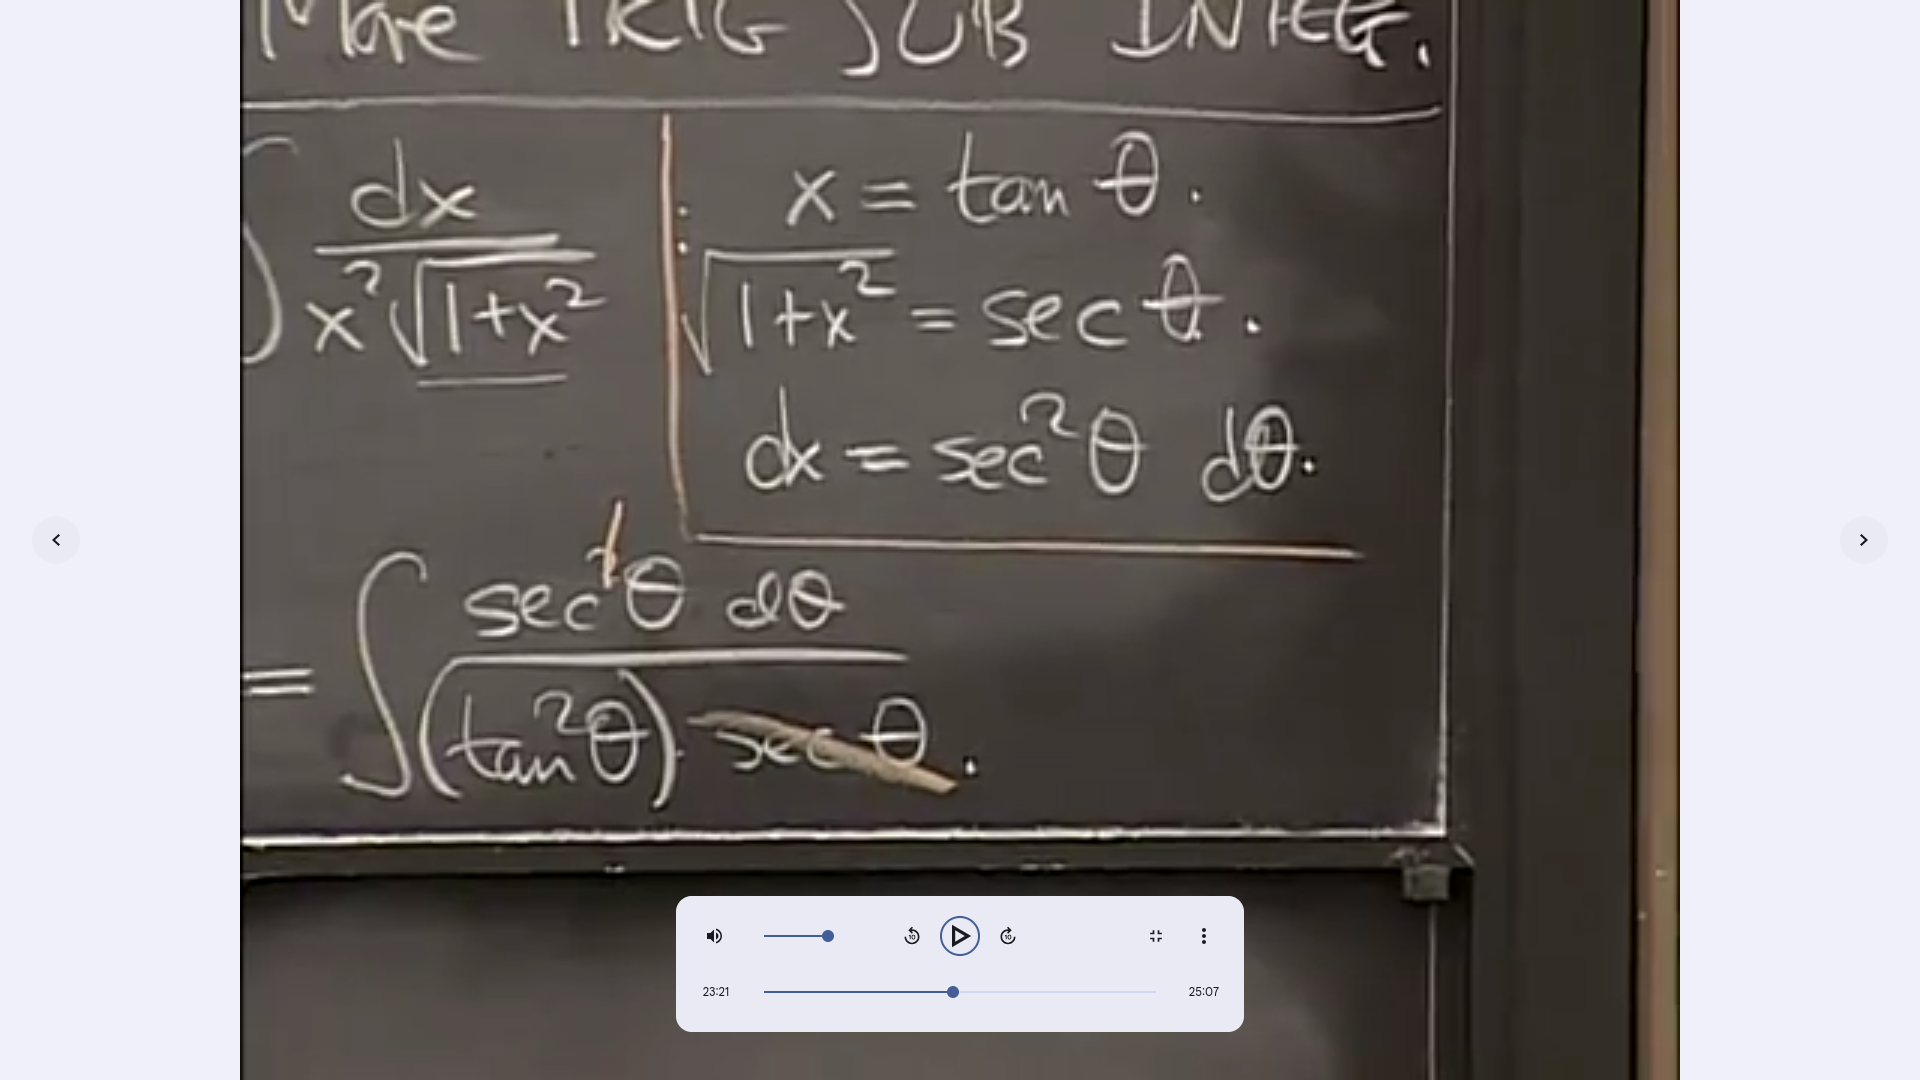 More TRIG SUB INTEG.
∫ dx / x²√1+x²
x = tan θ.
√1+x² = sec θ.
dx = sec²θ dθ.
= ∫ sec¹θ dθ / (tan²θ) · sec θ.
23:21
25:07